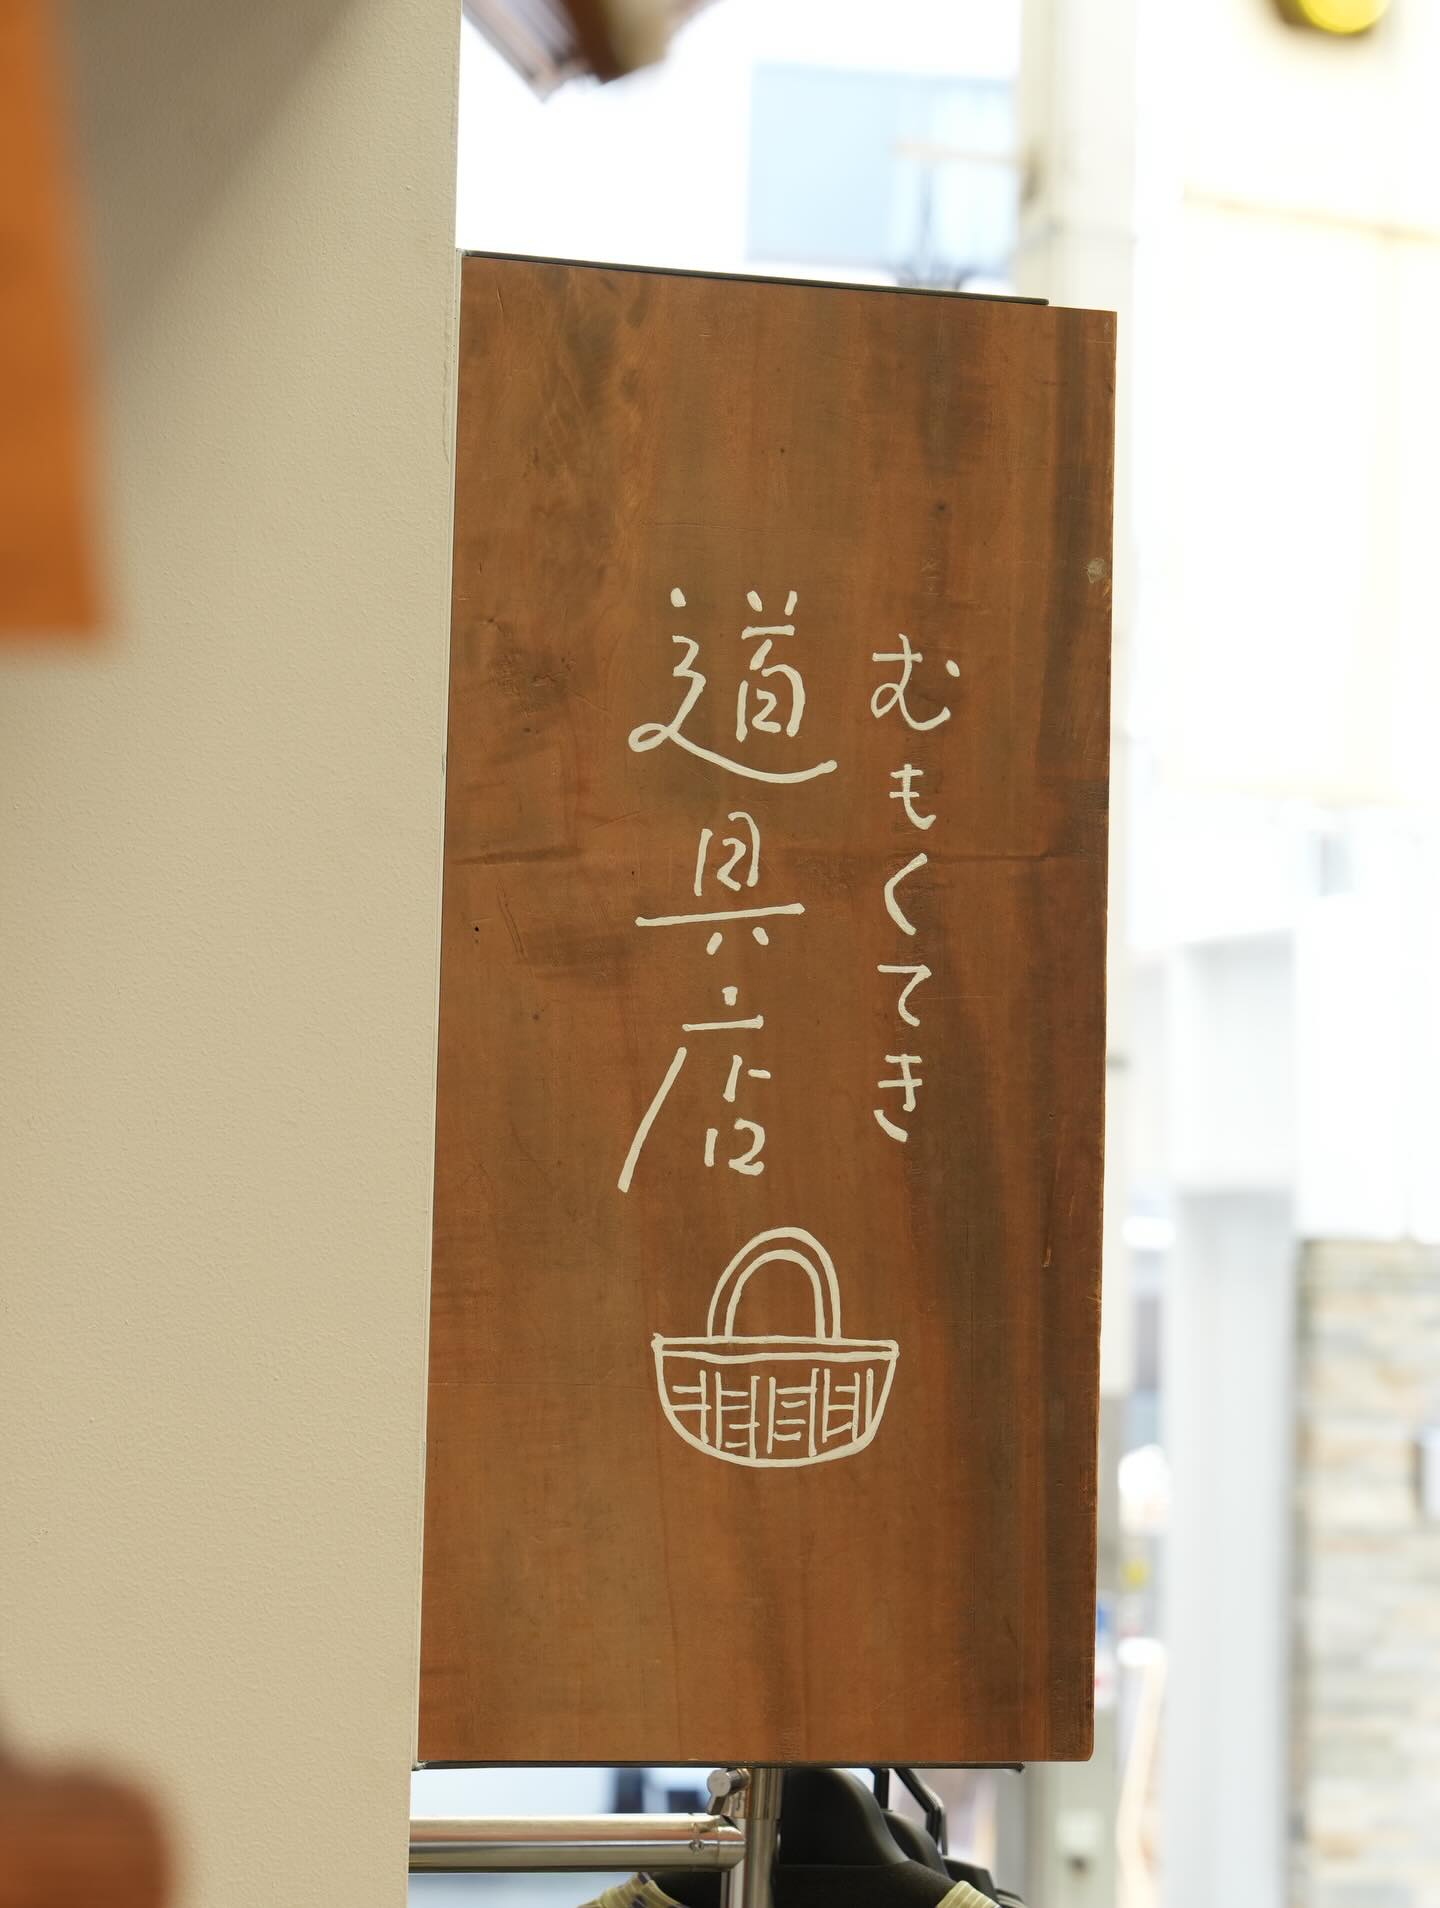 むもくてき
道具店